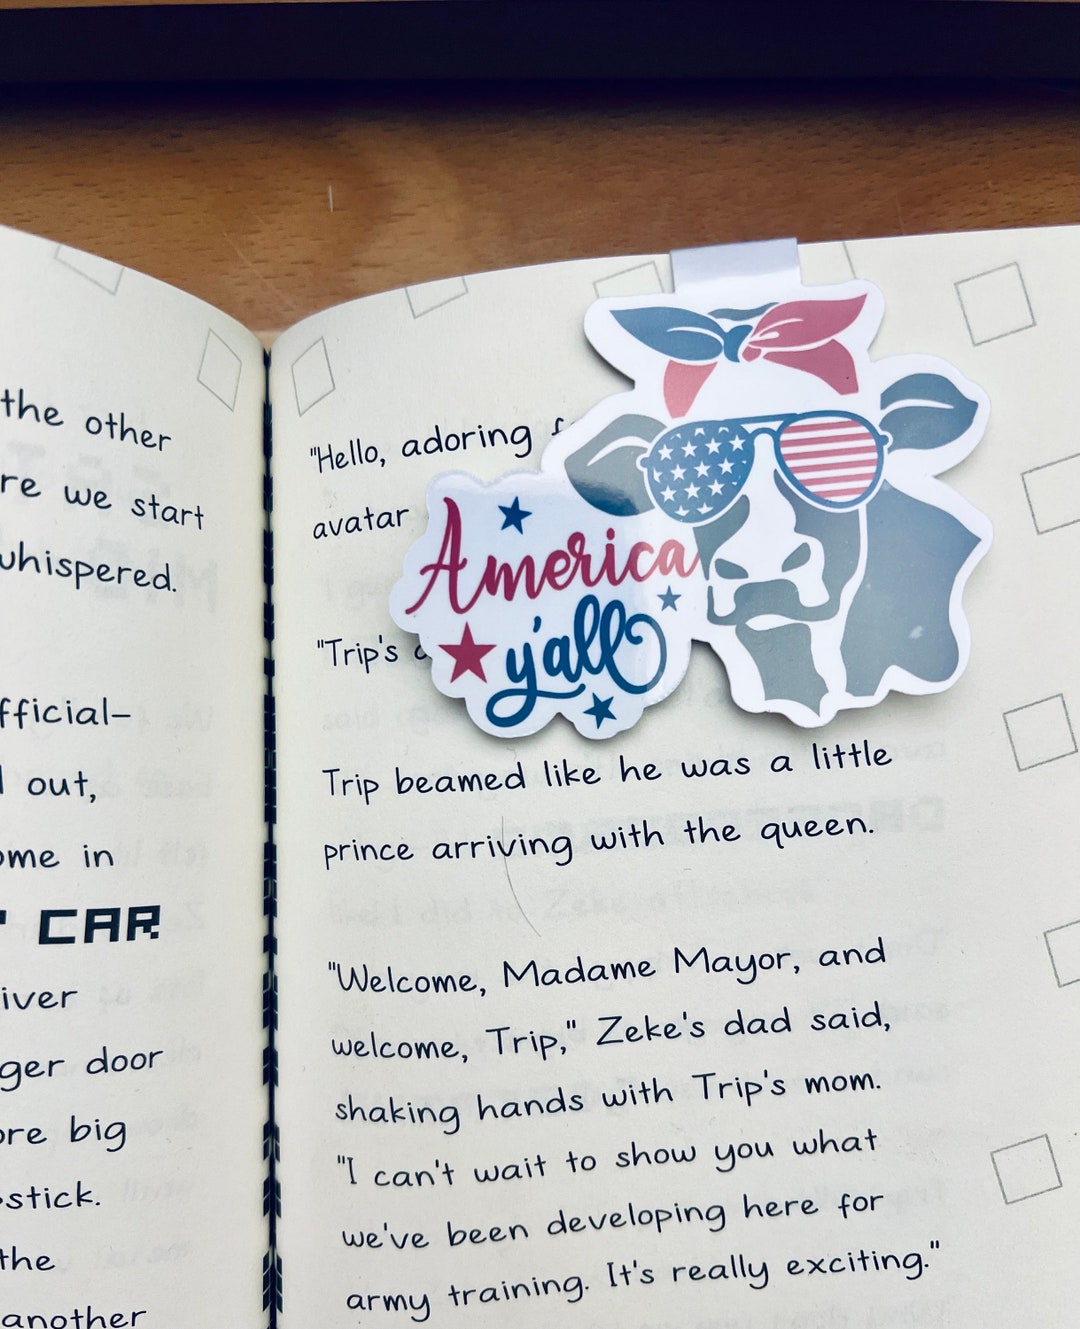 the other
re we start
whispered.
fficial-
out,
ome in
CAR
iver
ger door
ore big
stick.
the
another
"Hello, adoring
avatar
"Trip's
America
y'all
Trip beamed like he was a little
prince arriving with the queen.
"Welcome, Madame Mayor, and
welcome, Trip," Zeke's dad said,
shaking hands with Trip's mom.
"I can't wait to show you what
we've been developing here for
army training. It's really exciting."